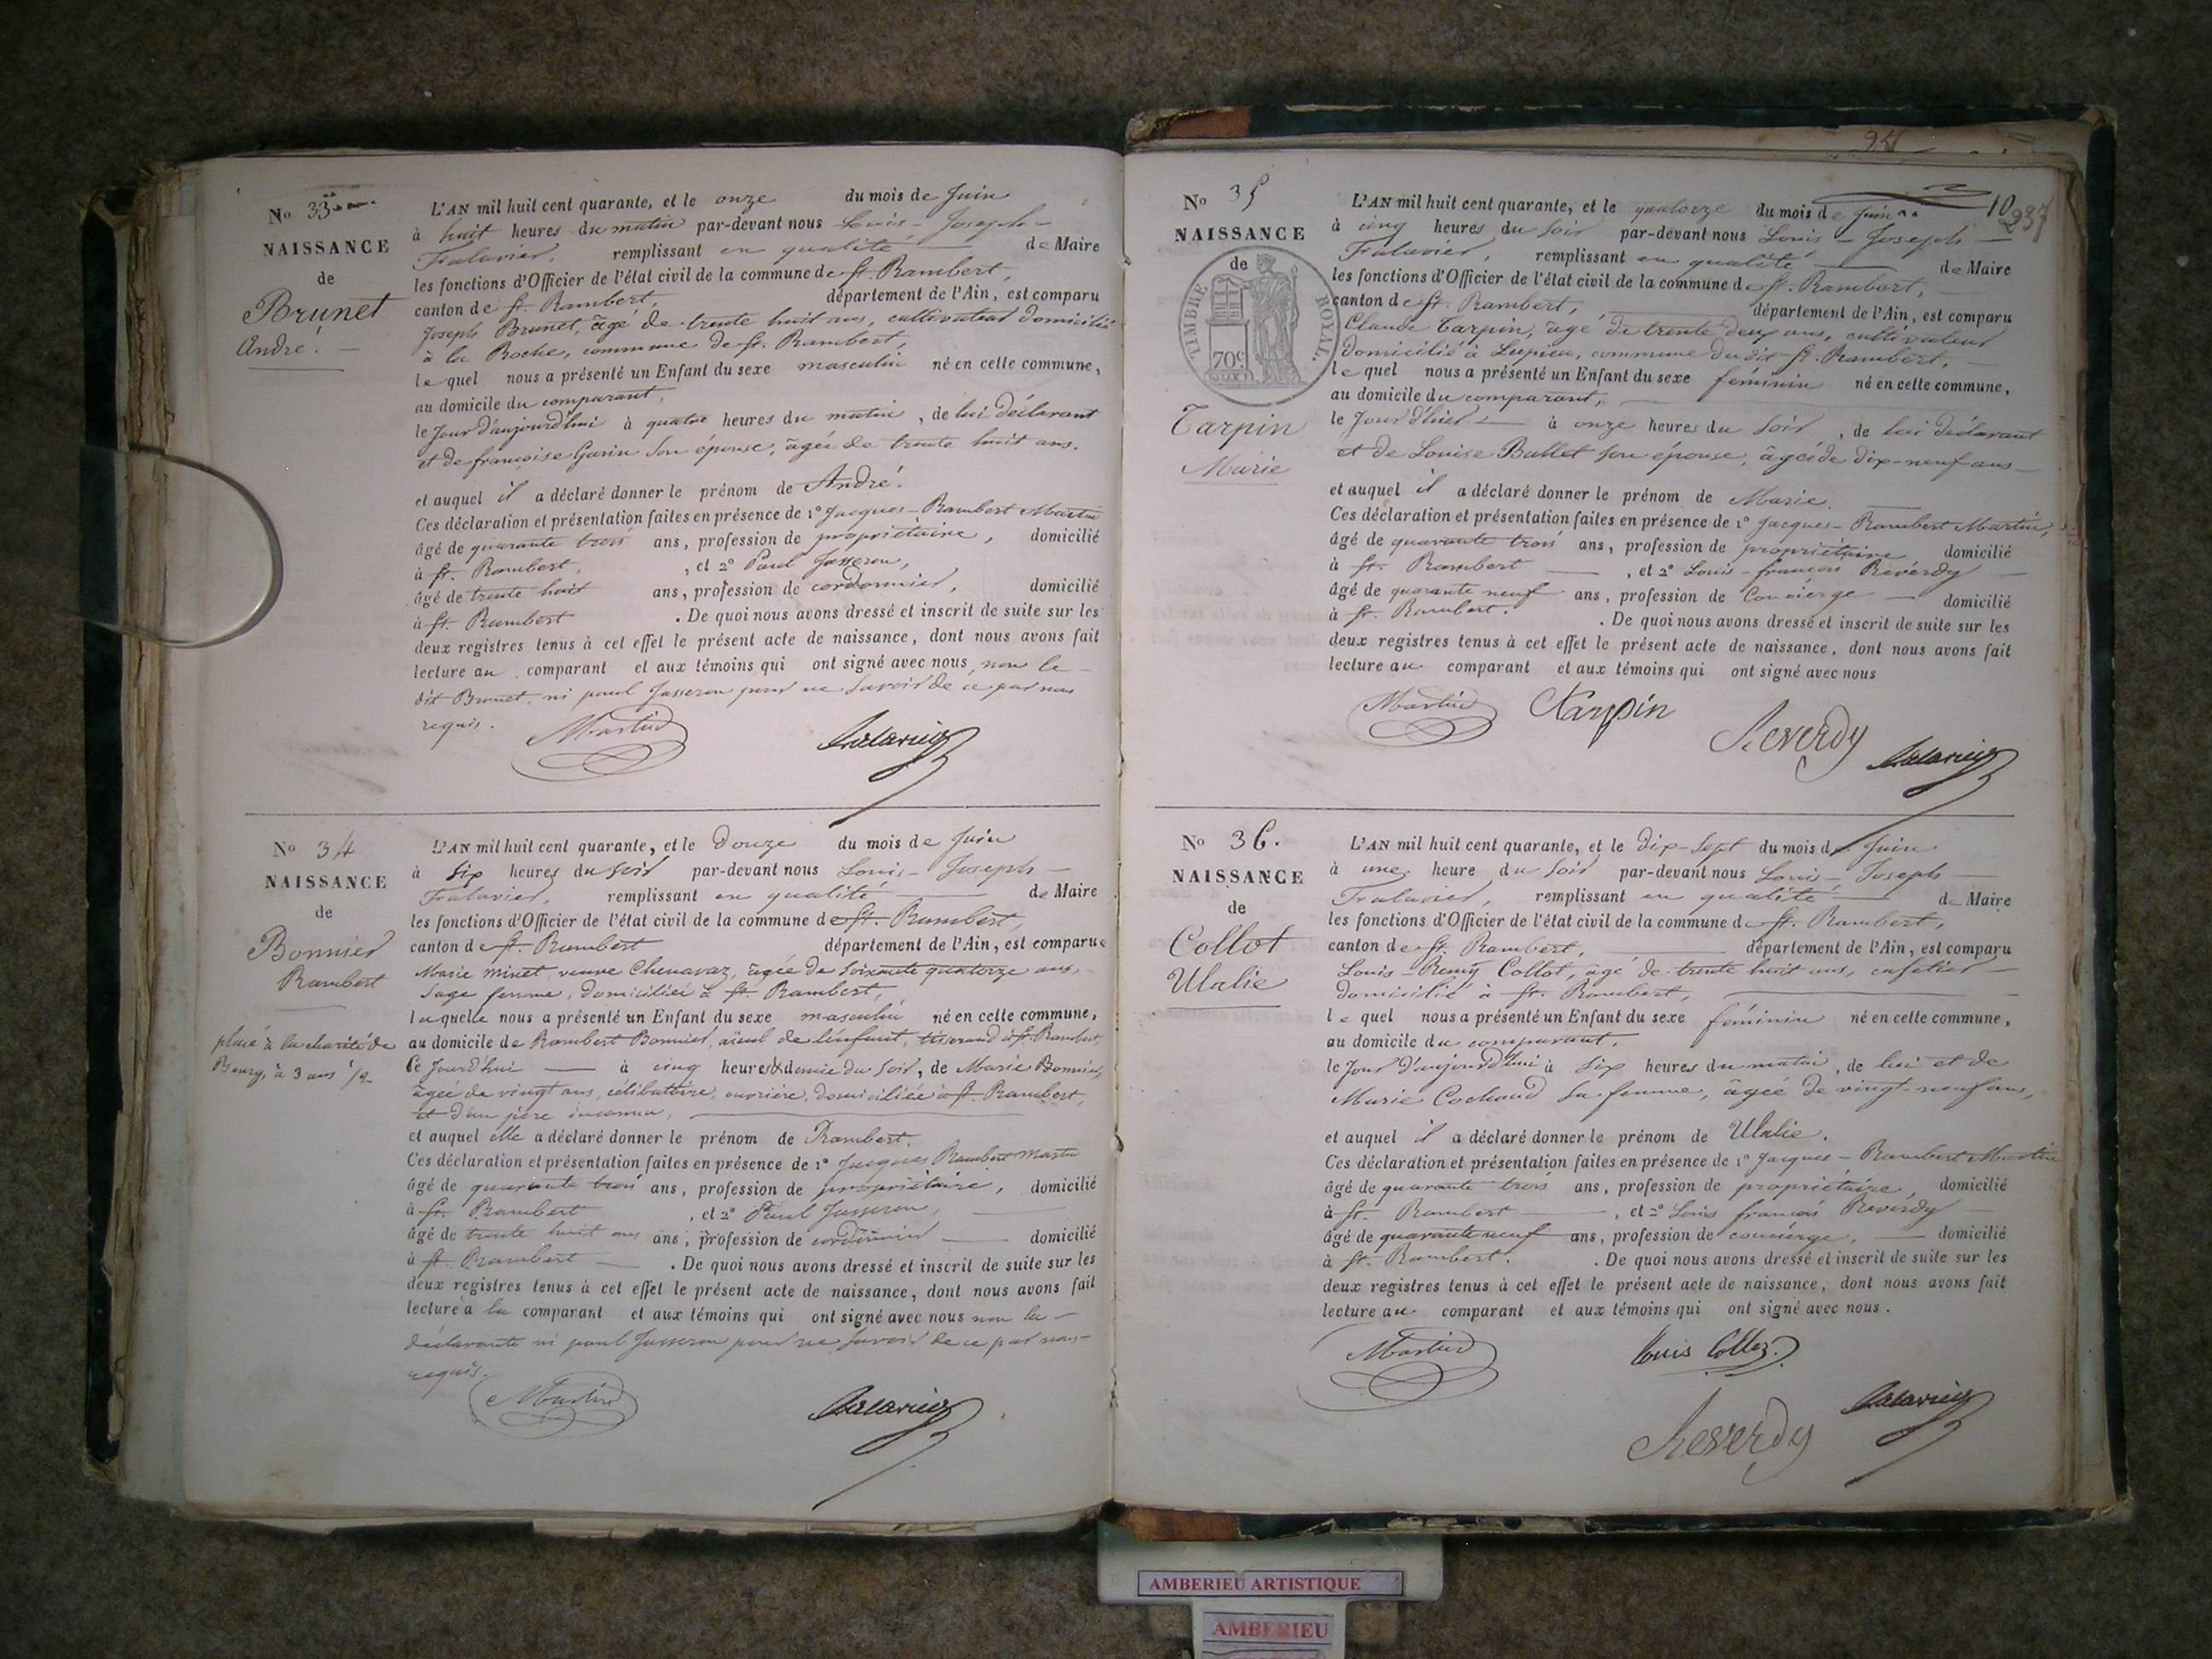 No 33
NAISSANCE
de
Brunet
André.
L'AN mil huit cent quarante, et le onze du mois de Juin
à huit heures du matin par-devant nous Louis-Joseph
Falavier, remplissant en qualité de Maire
les fonctions d'Officier de l'état civil de la commune de St. Rambert,
canton de St. Rambert, département de l'Ain, est comparu
Joseph Brunet, âgé de trente huit ans, cultivateur domicilié
à la Roche, commune de St. Rambert,
lequel nous a présenté un Enfant du sexe masculin né en cette commune,
au domicile du comparant,
le Jour d'aujourd'hui à quatre heures du matin, de lui déclarant
et de françoise Garin son épouse, âgée de trente huit ans.
et auquel il a déclaré donner le prénom de André.
Ces déclaration et présentation faites en présence de 1º Jacques-Rambert Martin
âgé de quarante trois ans, profession de propriétaire, domicilié
à St. Rambert, , et 2º Paul Jasseron,
âgé de trente huit ans, profession de cordonnier, domicilié
à St. Rambert . De quoi nous avons dressé et inscrit de suite sur les
deux registres tenus à cet effet le présent acte de naissance, dont nous avons fait
lecture au comparant et aux témoins qui ont signé avec nous, non le
dit Brunet, ni paul Jasseron pour ne savoir de ce par nous
requis.
Martin Falavier
No 34
NAISSANCE
de
Bonnier
Rambert
placé à la charité de
Bourg, à 3 ans 1/2
L'AN mil huit cent quarante, et le Douze du mois de Juin
à Six heures du Soir par-devant nous Louis-Joseph
Falavier, remplissant en qualité de Maire
les fonctions d'Officier de l'état civil de la commune de St. Rambert,
canton de St. Rambert département de l'Ain, est comparue
Marie Minet veuve Chenavaz, âgée de soixante quatorze ans,
Sage femme, domiciliée à St. Rambert,
laquelle nous a présenté un Enfant du sexe masculin né en cette commune,
au domicile de Rambert Bonnier, aïeul de l'enfant, tisserand à St. Rambert,
Ce Jourd'hui à cinq heures & demie du Soir, de Marie Bonnier,
âgée de vingt ans, célibataire, ouvrière, domiciliée à St. Rambert,
et d'un père inconnu,
et auquel elle a déclaré donner le prénom de Rambert.
Ces déclaration et présentation faites en présence de 1º Jacques Rambert Martin
âgé de quarante trois ans, profession de propriétaire, domicilié
à St. Rambert , et 2º Paul Jasseron,
âgé de trente huit ans ans, profession de cordonnier domicilié
à St. Rambert . De quoi nous avons dressé et inscrit de suite sur les
deux registres tenus à cet effet le présent acte de naissance, dont nous avons fait
lecture à la comparant et aux témoins qui ont signé avec nous non la
déclarante ni paul Jasseron pour ne savoir de ce par nous
requis.
Martin Falavier
94
10
237
No 35
NAISSANCE
de
TIMBRE ROYAL.
70c
Tarpin
Marie
L'AN mil huit cent quarante, et le quatorze du mois de Juin
à cinq heures du Soir par-devant nous Louis-Joseph
Falavier, remplissant en qualité de Maire
les fonctions d'Officier de l'état civil de la commune de St. Rambert,
canton de St. Rambert, département de l'Ain, est comparu
Claude Tarpin, âgé de trente deux ans, cultivateur
domicilié à Lupieu, commune du dit St. Rambert,
lequel nous a présenté un Enfant du sexe féminin né en cette commune,
au domicile du comparant,
le Jour d'hier à onze heures du Soir, de lui déclarant
et de Louise Ballet son épouse, âgée de dix-neuf ans
et auquel il a déclaré donner le prénom de Marie.
Ces déclaration et présentation faites en présence de 1º Jacques-Rambert Martin,
âgé de quarante trois ans, profession de propriétaire domicilié
à St. Rambert , et 2º Louis-françois Reverdy
âgé de quarante neuf ans, profession de Concierge domicilié
à St. Rambert. . De quoi nous avons dressé et inscrit de suite sur les
deux registres tenus à cet effet le présent acte de naissance, dont nous avons fait
lecture au comparant et aux témoins qui ont signé avec nous
Martin Tarpin
Reverdy Falavier
No 36.
NAISSANCE
de
Collot
Ulalie
L'AN mil huit cent quarante, et le Dix-Sept du mois de Juin
à une heure du Soir par-devant nous Louis-Joseph
Falavier, remplissant en qualité de Maire
les fonctions d'Officier de l'état civil de la commune de St. Rambert,
canton de St. Rambert, département de l'Ain, est comparu
Louis-Remy Collot, âgé de trente huit ans, cafetier
domicilié à St. Rambert,
lequel nous a présenté un Enfant du sexe féminin né en cette commune,
au domicile du comparant,
le Jour d'aujourd'hui à Six heures du matin, de lui et de
Marie Cochand sa femme, âgée de vingt-neuf ans,
et auquel il a déclaré donner le prénom de Ulalie.
Ces déclaration et présentation faites en présence de 1º Jacques-Rambert Martin
âgé de quarante trois ans, profession de propriétaire, domicilié
à St. Rambert , et 2º Louis françois Reverdy
âgé de quarante neuf ans, profession de concierge, domicilié
à St. Rambert. . De quoi nous avons dressé et inscrit de suite sur les
deux registres tenus à cet effet le présent acte de naissance, dont nous avons fait
lecture au comparant et aux témoins qui ont signé avec nous.
Martin Louis Collot
Reverdy Falavier
AMBERIEU ARTISTIQUE
AMBERIEU